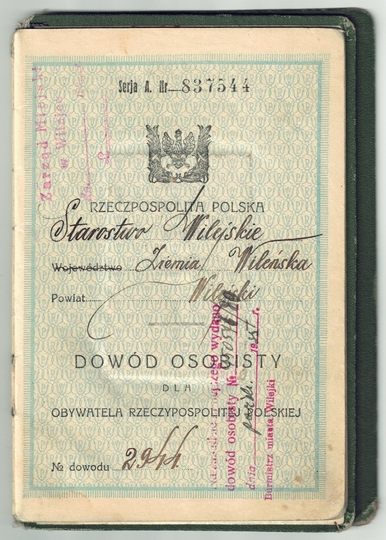 Serja A. Nr. 837544
RZECZPOSPOLITA POLSKA
Starostwo Wilejskie
Województwo Ziemia Wileńska
Powiat Wilejski
DOWÓD OSOBISTY
DLA
OBYWATELA RZECZYPOSPOLITEJ POLSKIEJ
№ dowodu 2944
Zarząd Miejski
w Wilejce
wydano
dowód osobisty №
dnia
Burmistrz miasta Wilejki